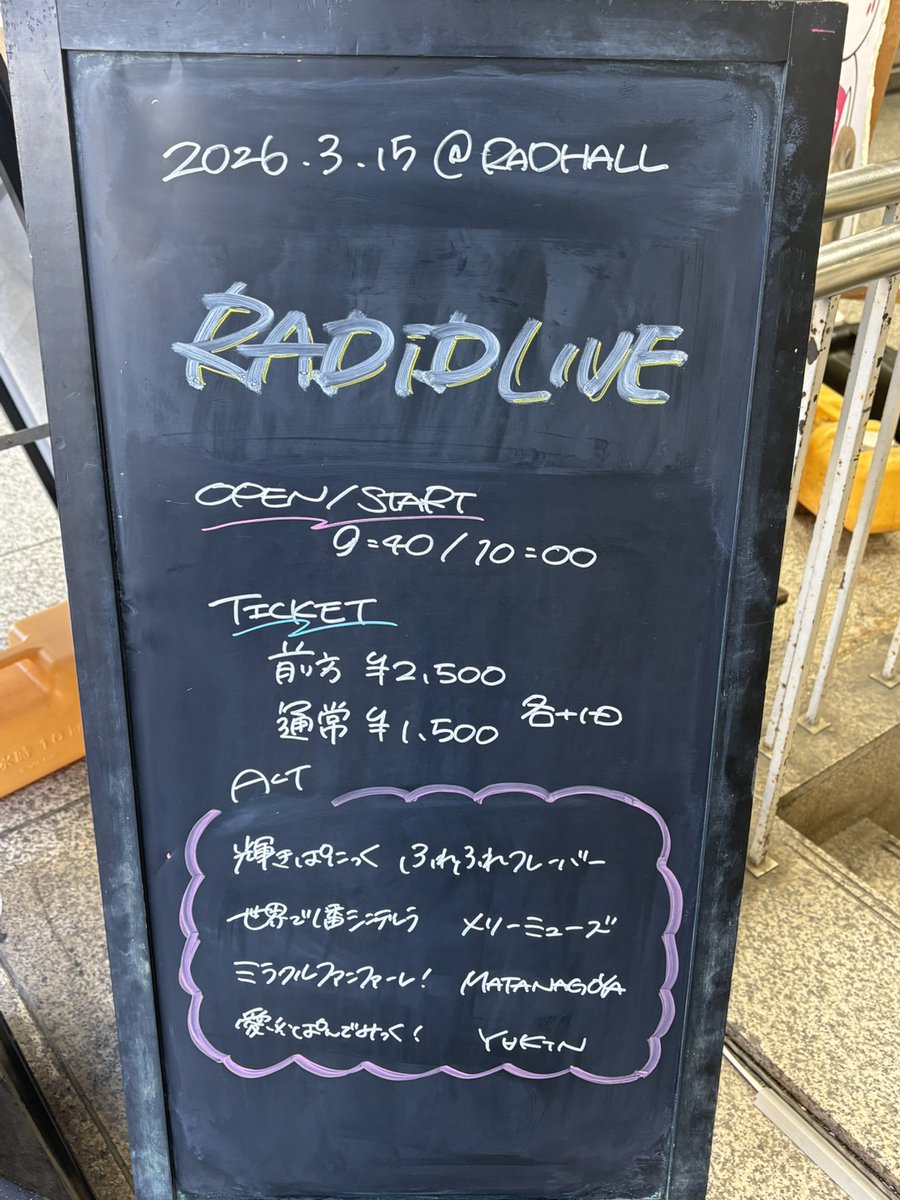 2026.3.15 @RADHALL
RADiDLiVE
OPEN/START
9:40/10:00
TICKET
前方 ¥2,500
通常 ¥1,500 各+1D
ACT
輝きぱにっく ふれふれフレーバー
世界で1番シンデレラ メリーミューズ
ミラクルファンファーレ! MATANAGOYA
愛しきぱんでみっく! YUKIN